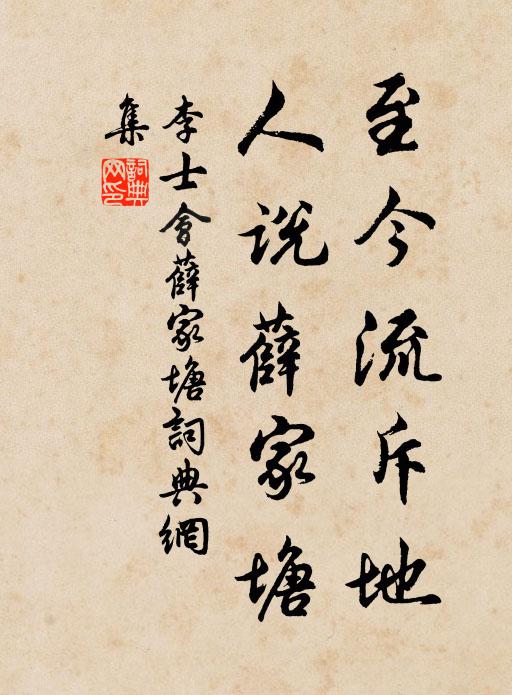 至今流斥地
人说薛家塘
李士會薛家塘詞典網
集
詞典網印